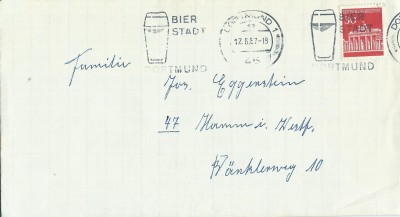 BIER
STADT
DORTMUND
DORTMUND 1
BIER
STADT
DORTMUND
30
Familie
Jos. Eggenstein
47 Hamm i. Westf.
Bänklerweg 10